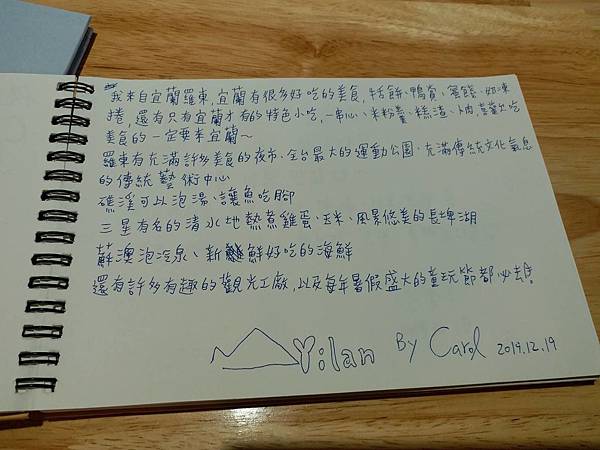 我來自宜蘭羅東,宜蘭有很多好吃的美食,牛舌餅、鴨賞、蜜餞、奶凍
捲,還有只有宜蘭才有的特色小吃,一串心、米粉羹、糕渣、卜肉,喜歡吃
美食的一定要來宜蘭~
羅東有充滿許多美食的夜市、全台最大的運動公園、充滿傳統文化氣息
的傳統藝術中心
礁溪可以泡湯、讓魚吃腳
三星有名的清水地熱煮雞蛋、玉米、風景悠美的長埤湖
蘇澳泡冷泉、新鮮好吃的海鮮
還有許多有趣的觀光工廠,以及每年暑假盛大的童玩節都必去!
Yilan By Carol 2019.12.19